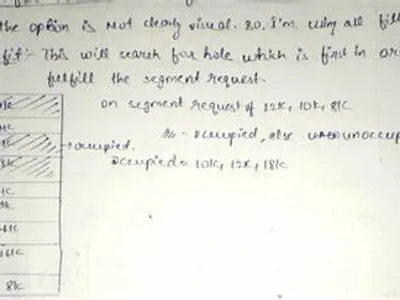 the option is not clearly visual. so, I'm using all fill
fit:- This will search for hole which is first in or
fulfill the segment request.
on segment request of 12K, 10K, 8K
- occupied, else unoccup
→ occupied.
occupied = 10K, 12K, 18K
8K